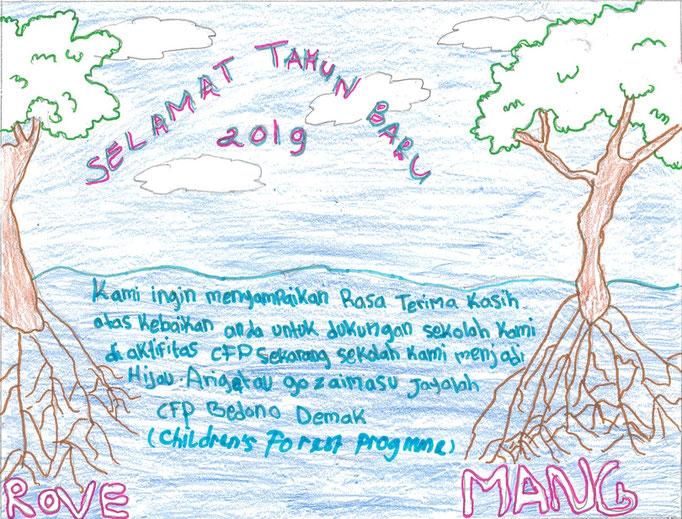 SELAMAT TAHUN BARU
2019
Kami ingin menyampaikan Rasa Terima Kasih
atas Kebaikan anda untuk dukungan sekolah Kami
di aktifitas CFP sekarang sekolah Kami menjadi
Hijau. Arigatau gozaimasu Jayalah
CFP Bedono Demak
(Children's Forest Progmme)
ROVE
MANG